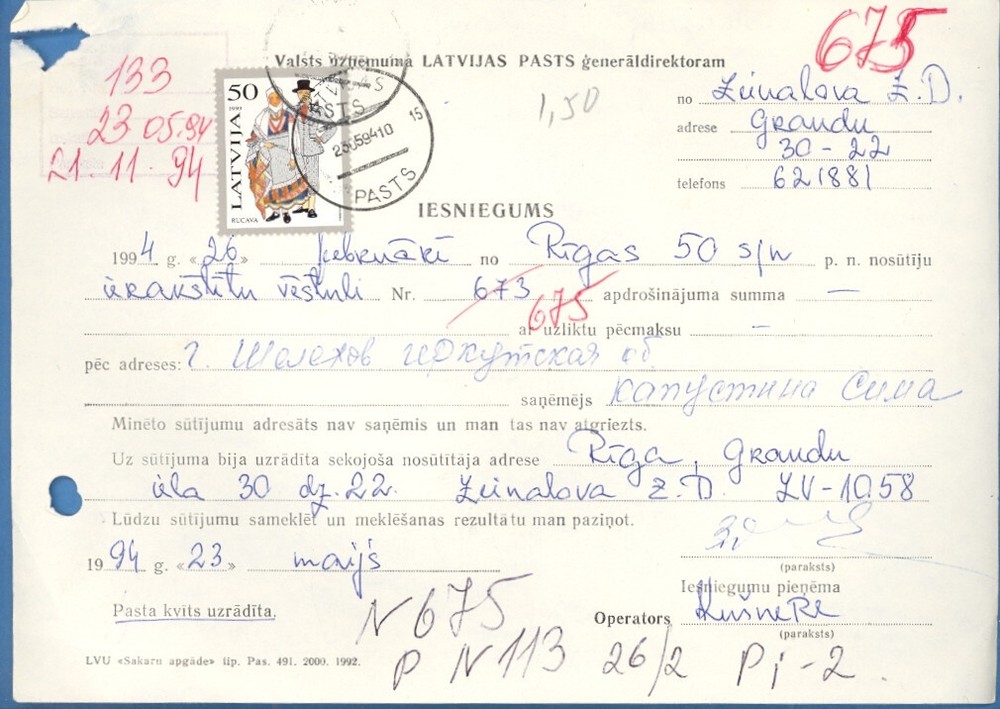 675
133
23 05.94
21.11.94
Valsts uzņēmuma LATVIJAS PASTS ģenerāldirektoram
1,50
no Zeinalova Z.D.
adrese Graudu
30-22
telefons 621881
50
1993
LATVIJA
RUCAVA
LATVIJAS
PASTS
15
PASTS
IESNIEGUMS
1994 g. «26» februārī no Rīgas 50 s/n p. n. nosūtīju
ierakstītu vēstuli Nr. 673 675 apdrošinājuma summa —
ar uzliktu pēcmaksu —
pēc adreses: г. Шелехов иркутская об
saņēmējs Капустина Сима
Minēto sūtījumu adresāts nav saņēmis un man tas nav atgriezts.
Uz sūtījuma bija uzrādīta sekojoša nosūtītāja adrese Rīga, Graudu
iela 30 dz.22. Zeinalova Z.D. LV-1058
Lūdzu sūtījumu sameklēt un meklēšanas rezultātu man paziņot.
1994 g. «23» maijs
(paraksts)
Iesniegumu pieņēma
Pasta kvīts uzrādīta.
Operators Kušnere
(paraksts)
N 675
P N 113 26/2 Pj-2.
LVU «Sakaru apgāde» tip. Pas. 491. 2000. 1992.